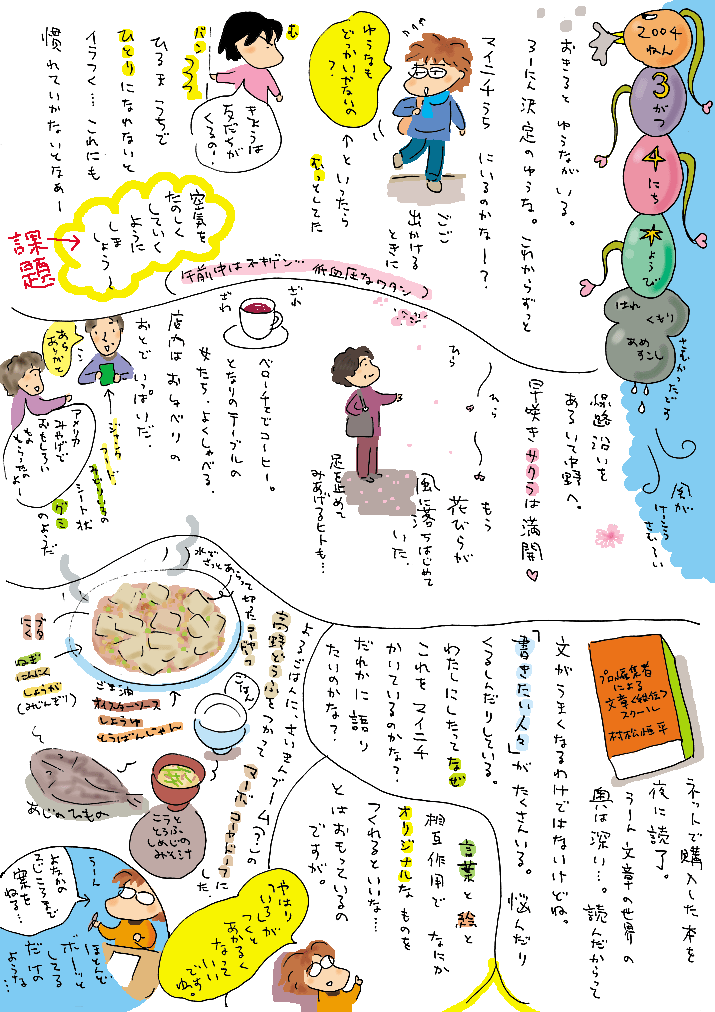 2004
ねん
3
がつ
4
にち
ようび
はれ
くもり
あめ
すこし
さむかったどす
風が
けっこう
さむい
おきると ゆうながいる。
ろーにん決定のゆうな。これからずっと
マイニチうち にいるのかなー?
ゆうなも
どっかいかないの
?
↑といったら
むっとしてた
ごご
出かける
ときに
む
パン
きょうは
友だちが
くるの!
ひるま うちで
ひとりになれないと
イラつく…これにも
慣れていかないとなぁー
空気を
たのしく
していく
ように
しま
しょう!
課題
午前中はフキゲン…低血圧なワタシ
線路沿いを
あるいて中野へ。
早咲きサクラは満開
もう
花びらが
風に落ちはじめて
いた。
ひら
ひら
足を止めて
みあげるヒトも…
ベローチェでコーヒー。
となりのテーブルの
女たち、よくしゃべる。
店内はおしゃべりの
おとでいっぱいだ。
ざわ
ざわ
あら
ありがと
アメリカ
みやげで
おもしろい
もらったのよー
ジャンク
フード
みどりいろの
シート状
グミ
のようだ
プロ編集者
による
文章〈超伝〉
スクール
村松恒平
ネットで購入した本を
夜に読了。
うーん文章の世界の
奥は深い…。読んだからって
文がうまくなるわけではないけどね。
「書きたい人々」がたくさんいる。悩んだり
くるしんだりしている。
わたしにしたってなぜ
これをマイニチ
かいているのかな?
だれかに語り
たいのかな?
言葉と絵と
相互作用で なにか
オリジナルなものを
つくれるといいな…
とはおもっているの
ですが。
よるごはんに、さいきんブーム(?)の
高野どうふをつかって マーボコーヤドーフに
した。
水で
さっとあらって
切ったコーヤ
ブタ
にく
ねぎ
にんにく
しょうが
(みじんぎり)
ごま油
オイスターソース
しょうゆ
とうばんじゃん
ごはん
あじのひもの
ニラと
とうふ
しめじの
みそ汁
やはり
いろが
つくと
あかるく
なって
いい
です
ゆ。
うーん
よなかの
2じころまで
案を
ねる…
ほとんど
ボーッと
してる
だけの
ような…